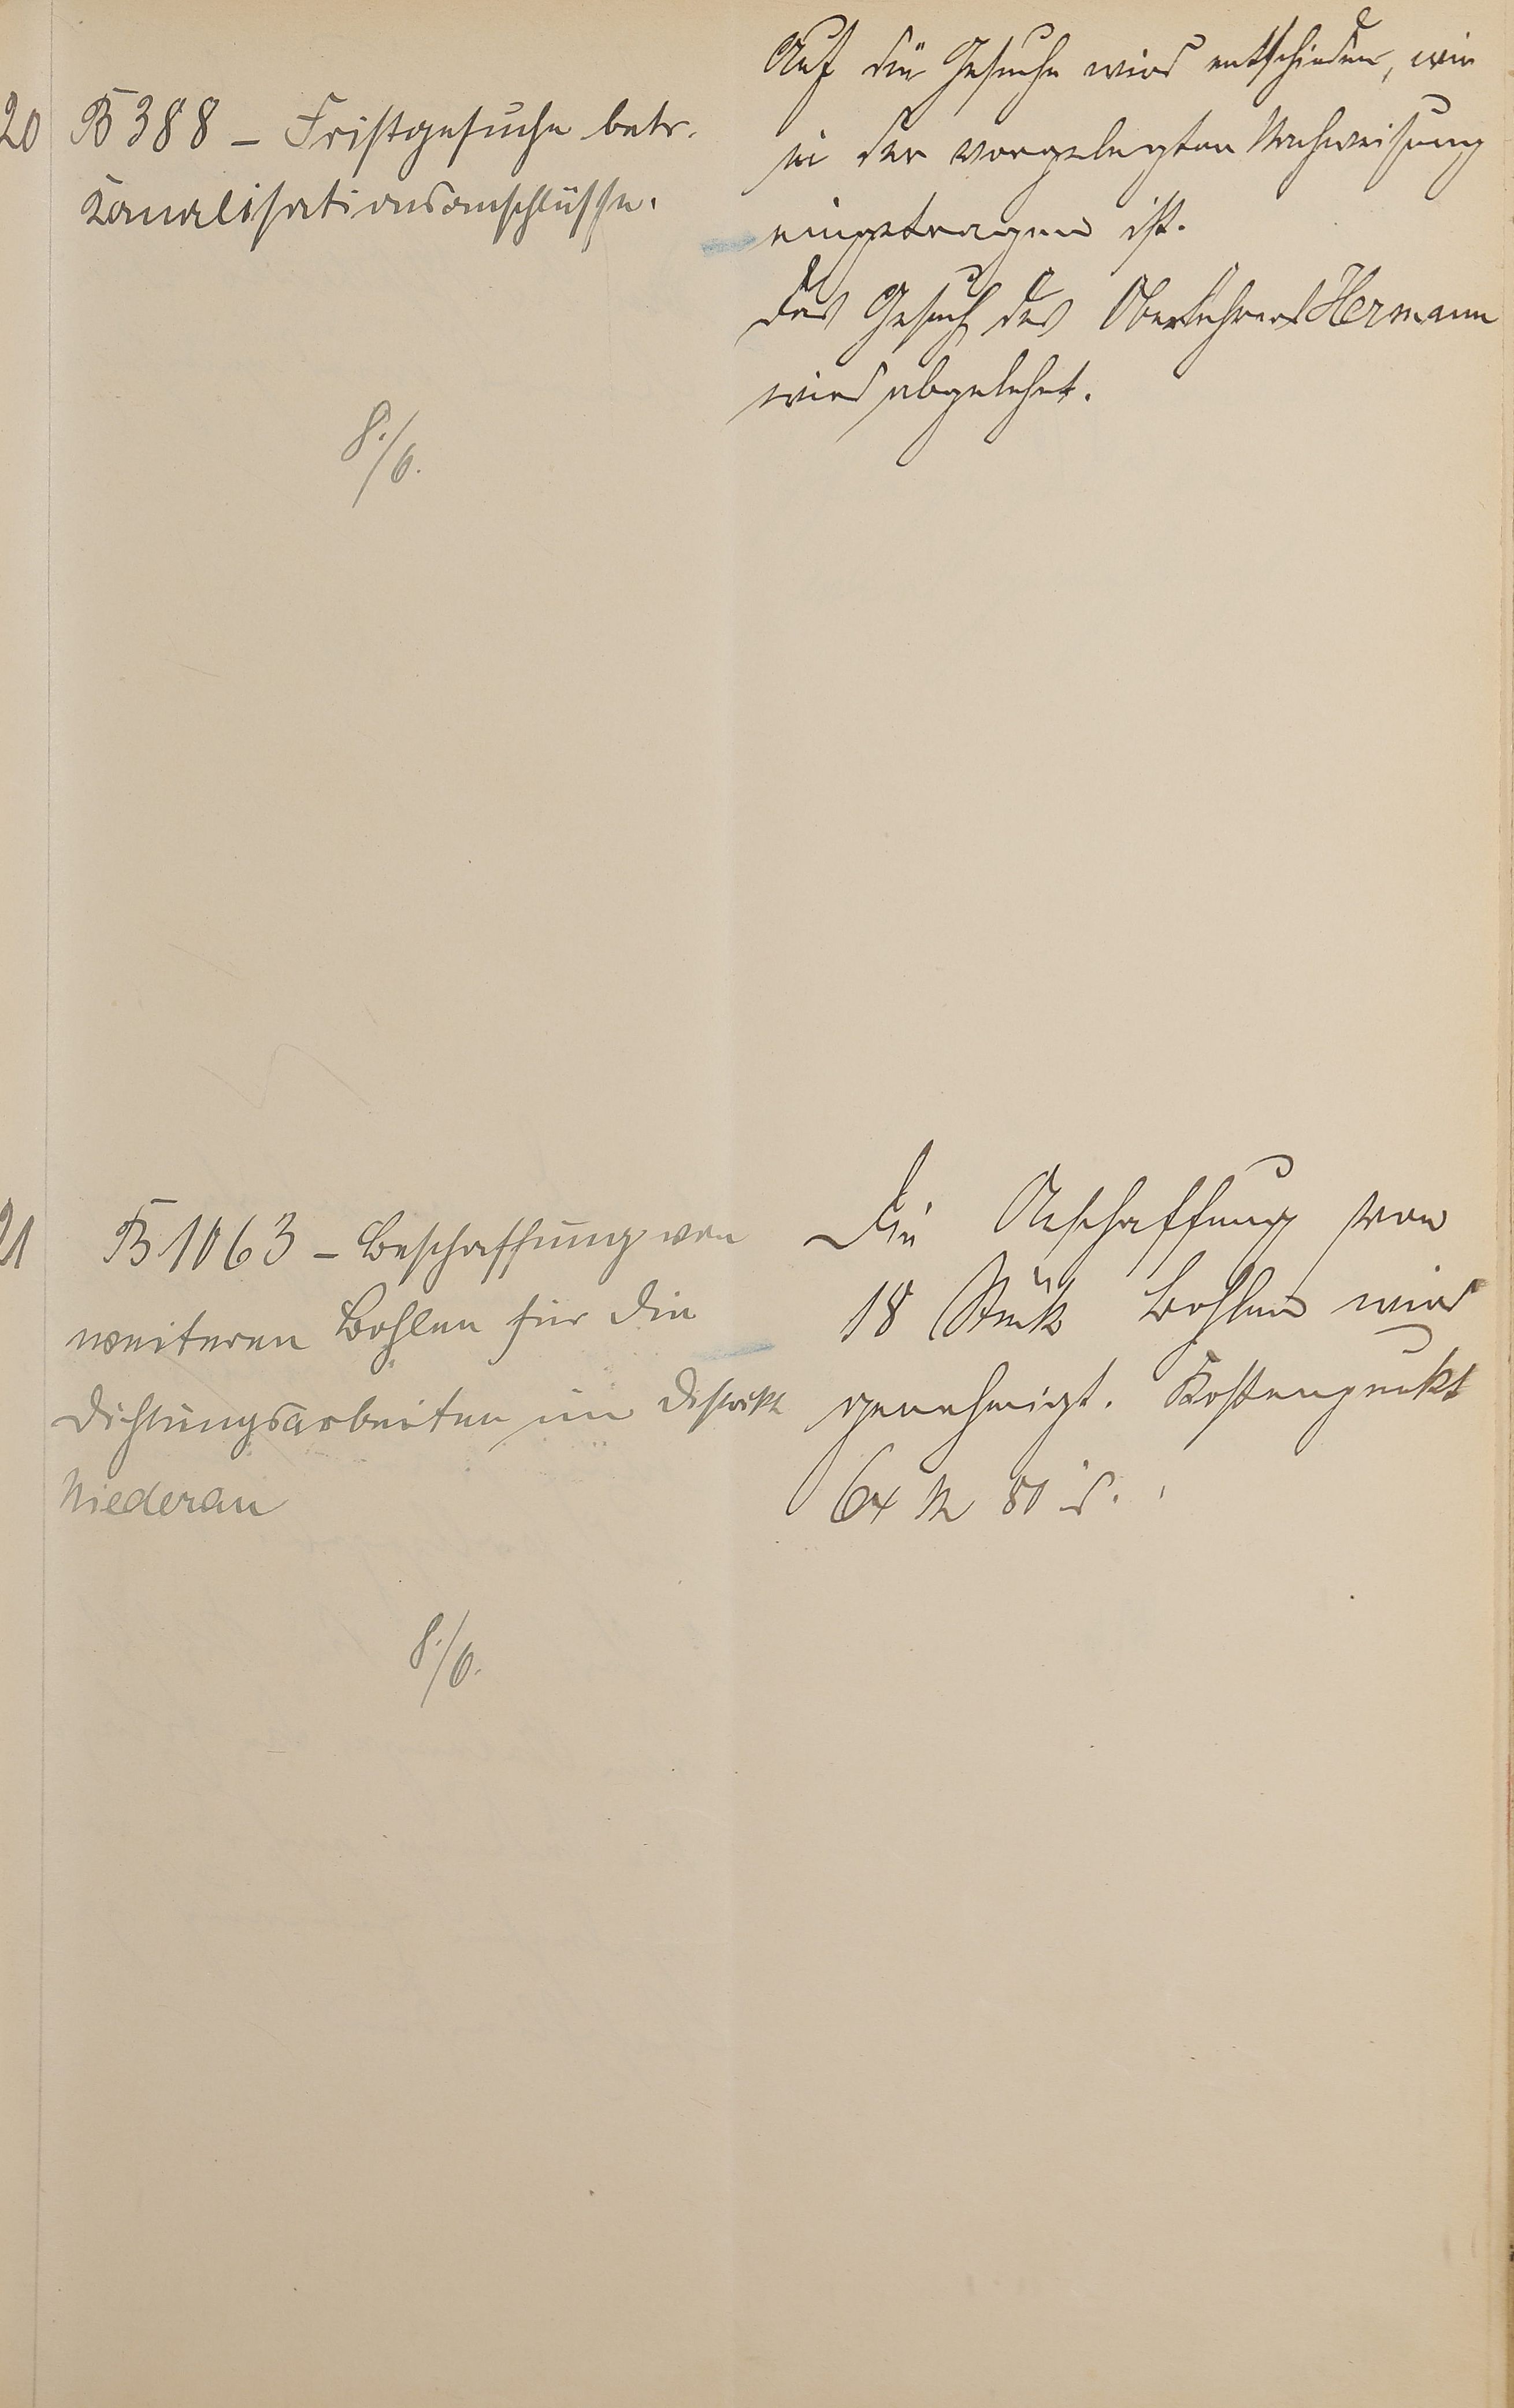 20
B 388 – Fristgesuche betr.
Kanalisationsanschlüsse.
8./6.
Auf die Gesuche wird entschieden, wie
in der vorgelegten Nachweisung
eingetragen ist.
Das Gesuch des Oberlehrers Hermann
wird abgelehnt.
21
B 1063 – Beschaffung von
weiteren Bohlen für die
Dichtungsarbeiten im Distrikt
Niederau
8./6.
Die Anschaffung von
18 Stück Bohlen wird
genehmigt. Kostenpunkt
64 M 80 d.